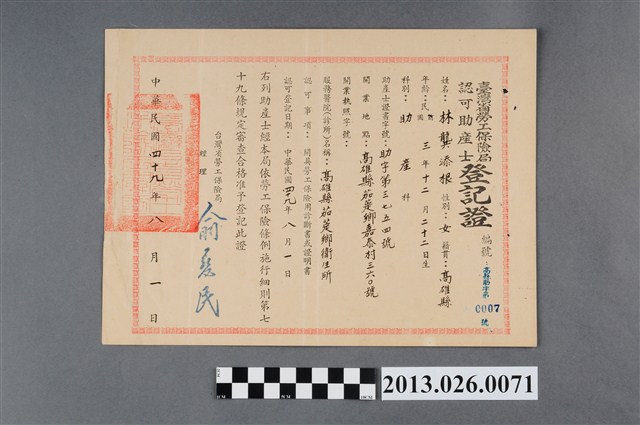 臺灣省勞工保險局
認可助產士登記證
編號：高縣助字第0007號
姓名：林龔添根 性別：女 籍貫：高雄縣
年齡：民國三年十二月二十二日生
科別：助產科
助產士證書字號：助字第三七五四號
開業地點：高雄縣茄萣鄉嘉泰村三六〇號
開業執照字號：
服務醫院(診所)名稱：高雄縣茄萣鄉衛生所
認可事項：開具勞工保險用診斷書或證明書
認可登記日期：中華民國四十九年八月一日
右列助產士經本局依勞工保險條例施行細則第七
十九條規定審查合格准予登記此證
台灣省勞工保險局
經理
中華民國四十九年八月一日
2013.026.0071